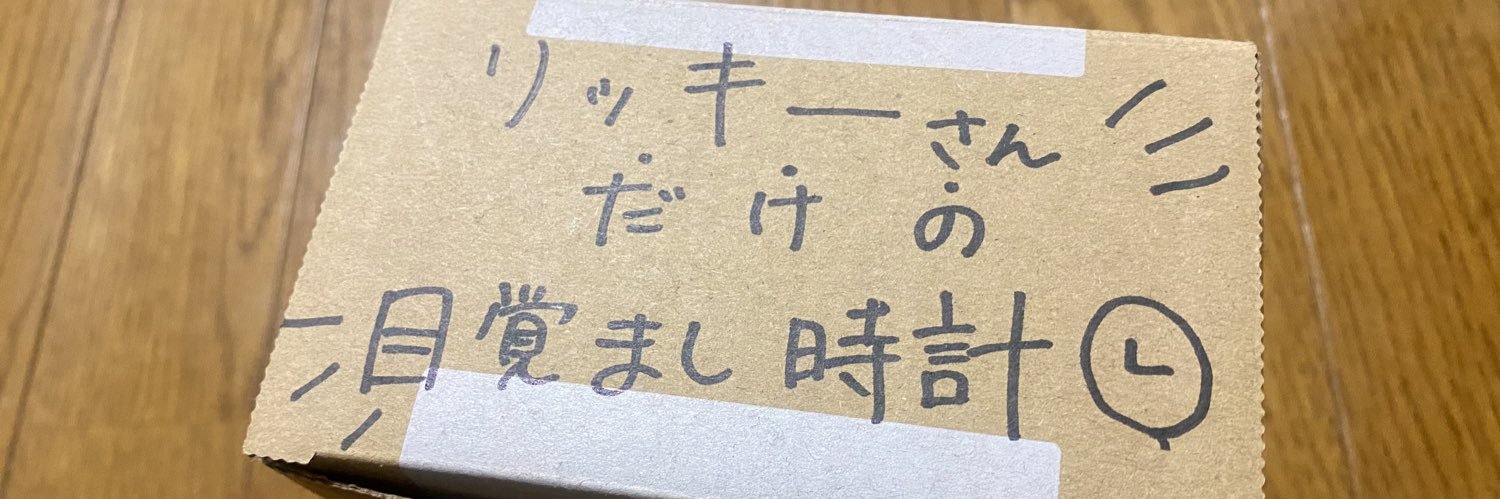 リッキーさん
だけの
目覚まし時計